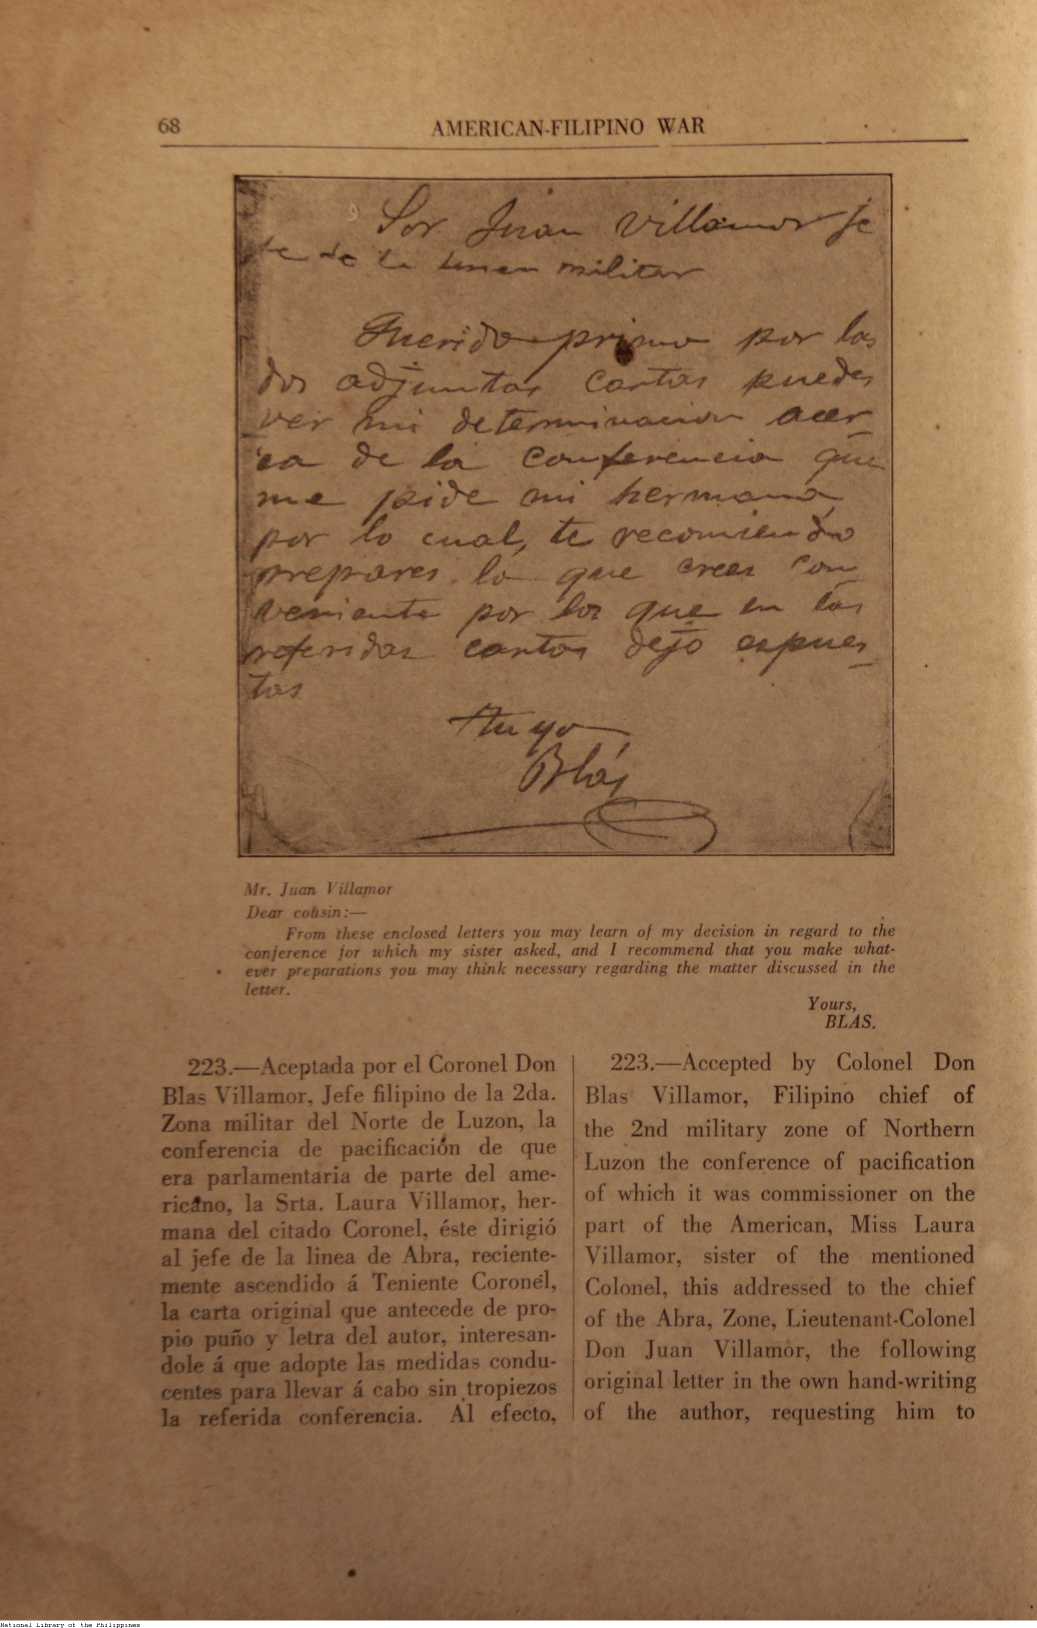 68
AMERICAN-FILIPINO WAR
Sor Juan Villamor je
fe de la linea militar
Querido primo por las
dos adjuntas cartas puedes
ver mi determinacion acer
ca de la conferencia que
me pide mi hermana,
por lo cual, te recomiendo
prepares lo que creas con
veniente por los que en las
referidas cartas dejo espues
tas
tuyo
Blás
Mr. Juan Villamor
Dear cousin:—
From these enclosed letters you may learn of my decision in regard to the
conference for which my sister asked, and I recommend that you make what-
ever preparations you may think necessary regarding the matter discussed in the
letter.
Yours,
BLAS.
223.—Aceptada por el Coronel Don
Blas Villamor, Jefe filipino de la 2da.
Zona militar del Norte de Luzon, la
conferencia de pacificación de que
era parlamentaria de parte del ame-
ricano, la Srta. Laura Villamor, her-
mana del citado Coronel, éste dirigió
al jefe de la linea de Abra, reciente-
mente ascendido á Teniente Coronel,
la carta original que antecede de pro-
pio puño y letra del autor, interesan-
dole á que adopte las medidas condu-
centes para llevar á cabo sin tropiezos
la referida conferencia. Al efecto,
223.—Accepted by Colonel Don
Blas Villamor, Filipino chief of
the 2nd military zone of Northern
Luzon the conference of pacification
of which it was commissioner on the
part of the American, Miss Laura
Villamor, sister of the mentioned
Colonel, this addressed to the chief
of the Abra, Zone, Lieutenant-Colonel
Don Juan Villamor, the following
original letter in the own hand-writing
of the author, requesting him to
National Library of the Philippines